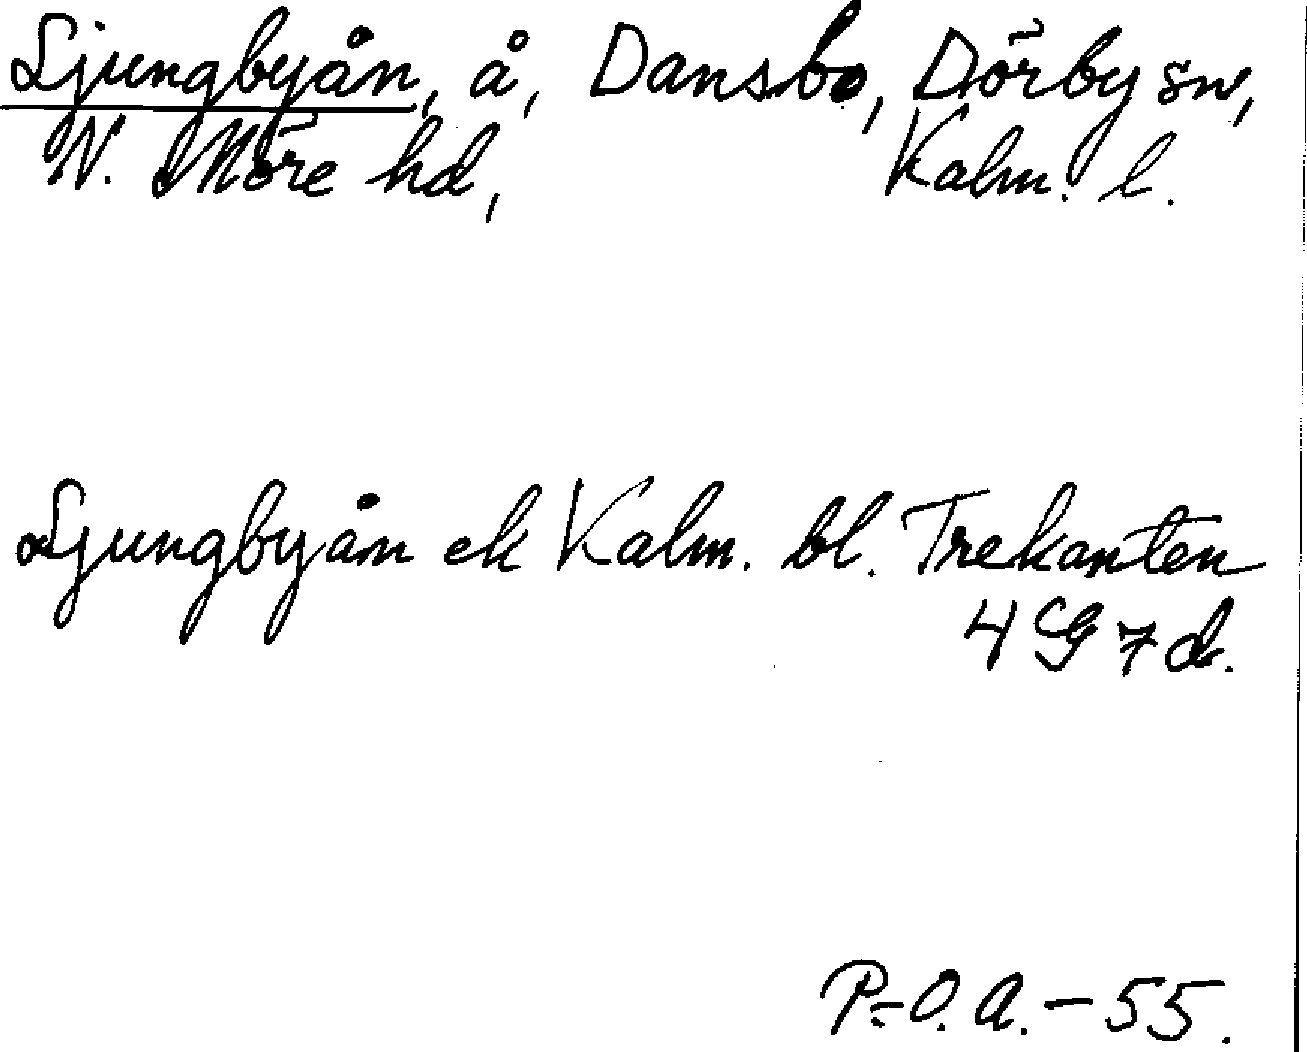 Ljungbyån, å, Dansbo, Dörby sn,
N. Möre hd, Kalm. l.
Ljungbyån ek Kalm. bl. Trekanten
4 G 7 d.
P.-O. A. - 55.